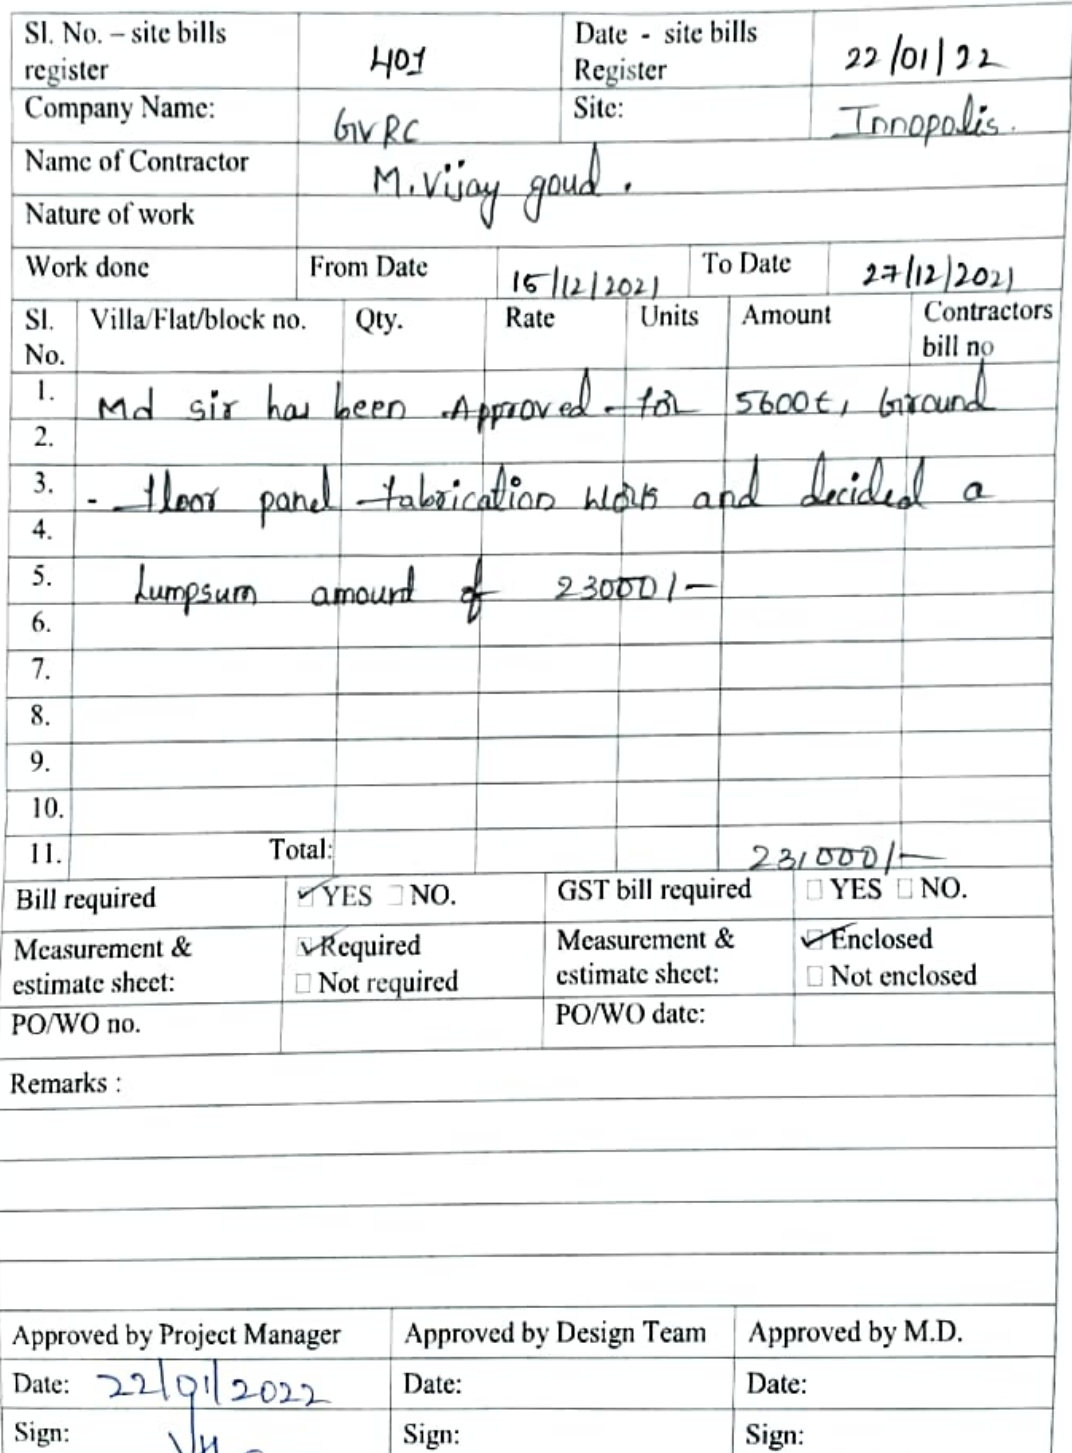 Sl. No. – site bills register 401 Date - site bills Register 22/01/22
Company Name: GVRC Site: Innopolis.
Name of Contractor M. Vijay goud.
Nature of work
Work done From Date 15/12/2021 To Date 27/12/2021
Sl. No. Villa/Flat/block no. Qty. Rate Units Amount Contractors bill no
1. Md sir has been Approved for 5600E, Ground
2.
3. - floor panel fabrication work and decided a
4.
5. Lumpsum amount of 23000/-
6.
7.
8.
9.
10.
11. Total: 231000/-
Bill required YES NO. GST bill required YES NO.
Measurement & estimate sheet: Required Not required Measurement & estimate sheet: Enclosed Not enclosed
PO/WO no. PO/WO date:
Remarks :
Approved by Project Manager Approved by Design Team Approved by M.D.
Date: 22/01/2022 Date: Date:
Sign: Sign: Sign: